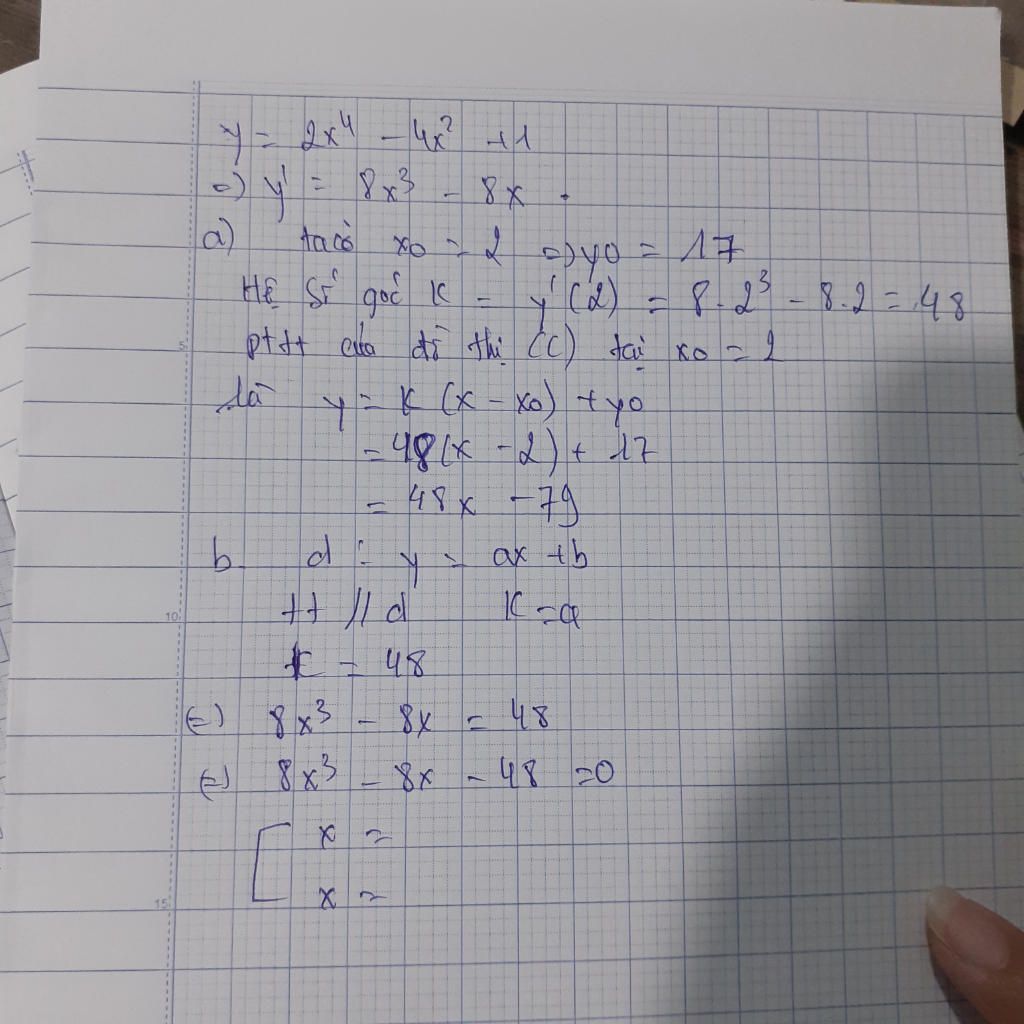 y = 2x⁴ - 4x² + 1
=> y' = 8x³ - 8x .
a) ta có x0 = 2 => y0 = 17
Hệ số góc K = y'(2) = 8.2³ - 8.2 = 48
pttt của đồ thị (C) tại x0 = 2
là y = K (x - x0) + y0
= 48(x - 2) + 17
= 48x - 79
b. d : y = ax + b
tt // d K = a
K = 48
(=) 8x³ - 8x = 48
(=) 8x³ - 8x - 48 = 0
[ x =
x =
5
10
15